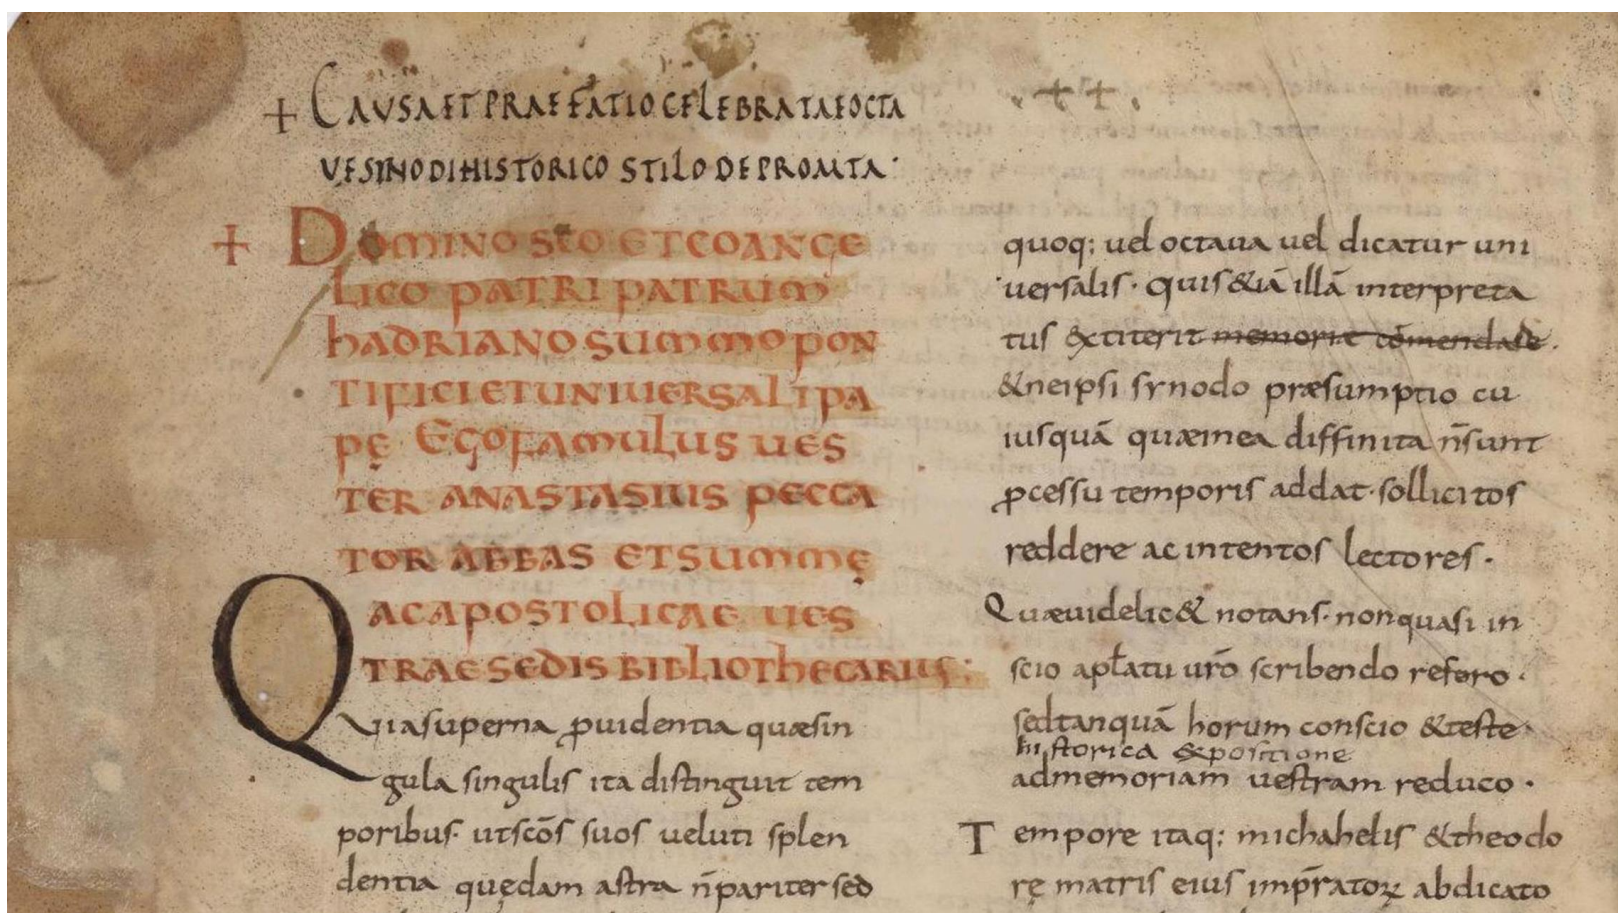 + CAUSA ET PRAEFATIO CELEBRATAE OCTA
VE SINODI HISTORICO STILO DEPROMTA·
+ DOMINO SC̄O ET COANGE
LICO PATRI PATRUM
hADRIANO SUMMO PON
TIFICI ET UNIUERSALI PA
PĘ EGO FAMULUS UES
TER ANASTASIUS PECCA
TOR ABBAS ET SUMMĘ
AC APOSTOLICAE UES
TRAE SEDIS BIBLIOThECARIUS;
QUia superna ꝓuidentia quæ sin
gula singulis ita distinguit tem
poribus· ut sc̄os suos veluti splen
dentia quędam astra n̄ pariter sed
. + + .
quoq; uel octaua uel dicatur uni
uersalis· quis &iā illā interpreta
tus extiterit memoriæ cōmendare.
& ne ipsi synodo præsumptio cu
iusquā quæ in ea diffinita n̄ sunt
ꝓcessu temporis addat· sollicitos
reddere ac intentos lectores·
Quæ uidelic& notans· non quasi in
scio apl̄atu ur̄o scribendo refero·
sed tanquā horum conscio & teste·
historica expositione
ad memoriam uestram reduco·
Tempore itaq; michahelis & theodo
rę matris eius imp̄ratoꝝ abdicato